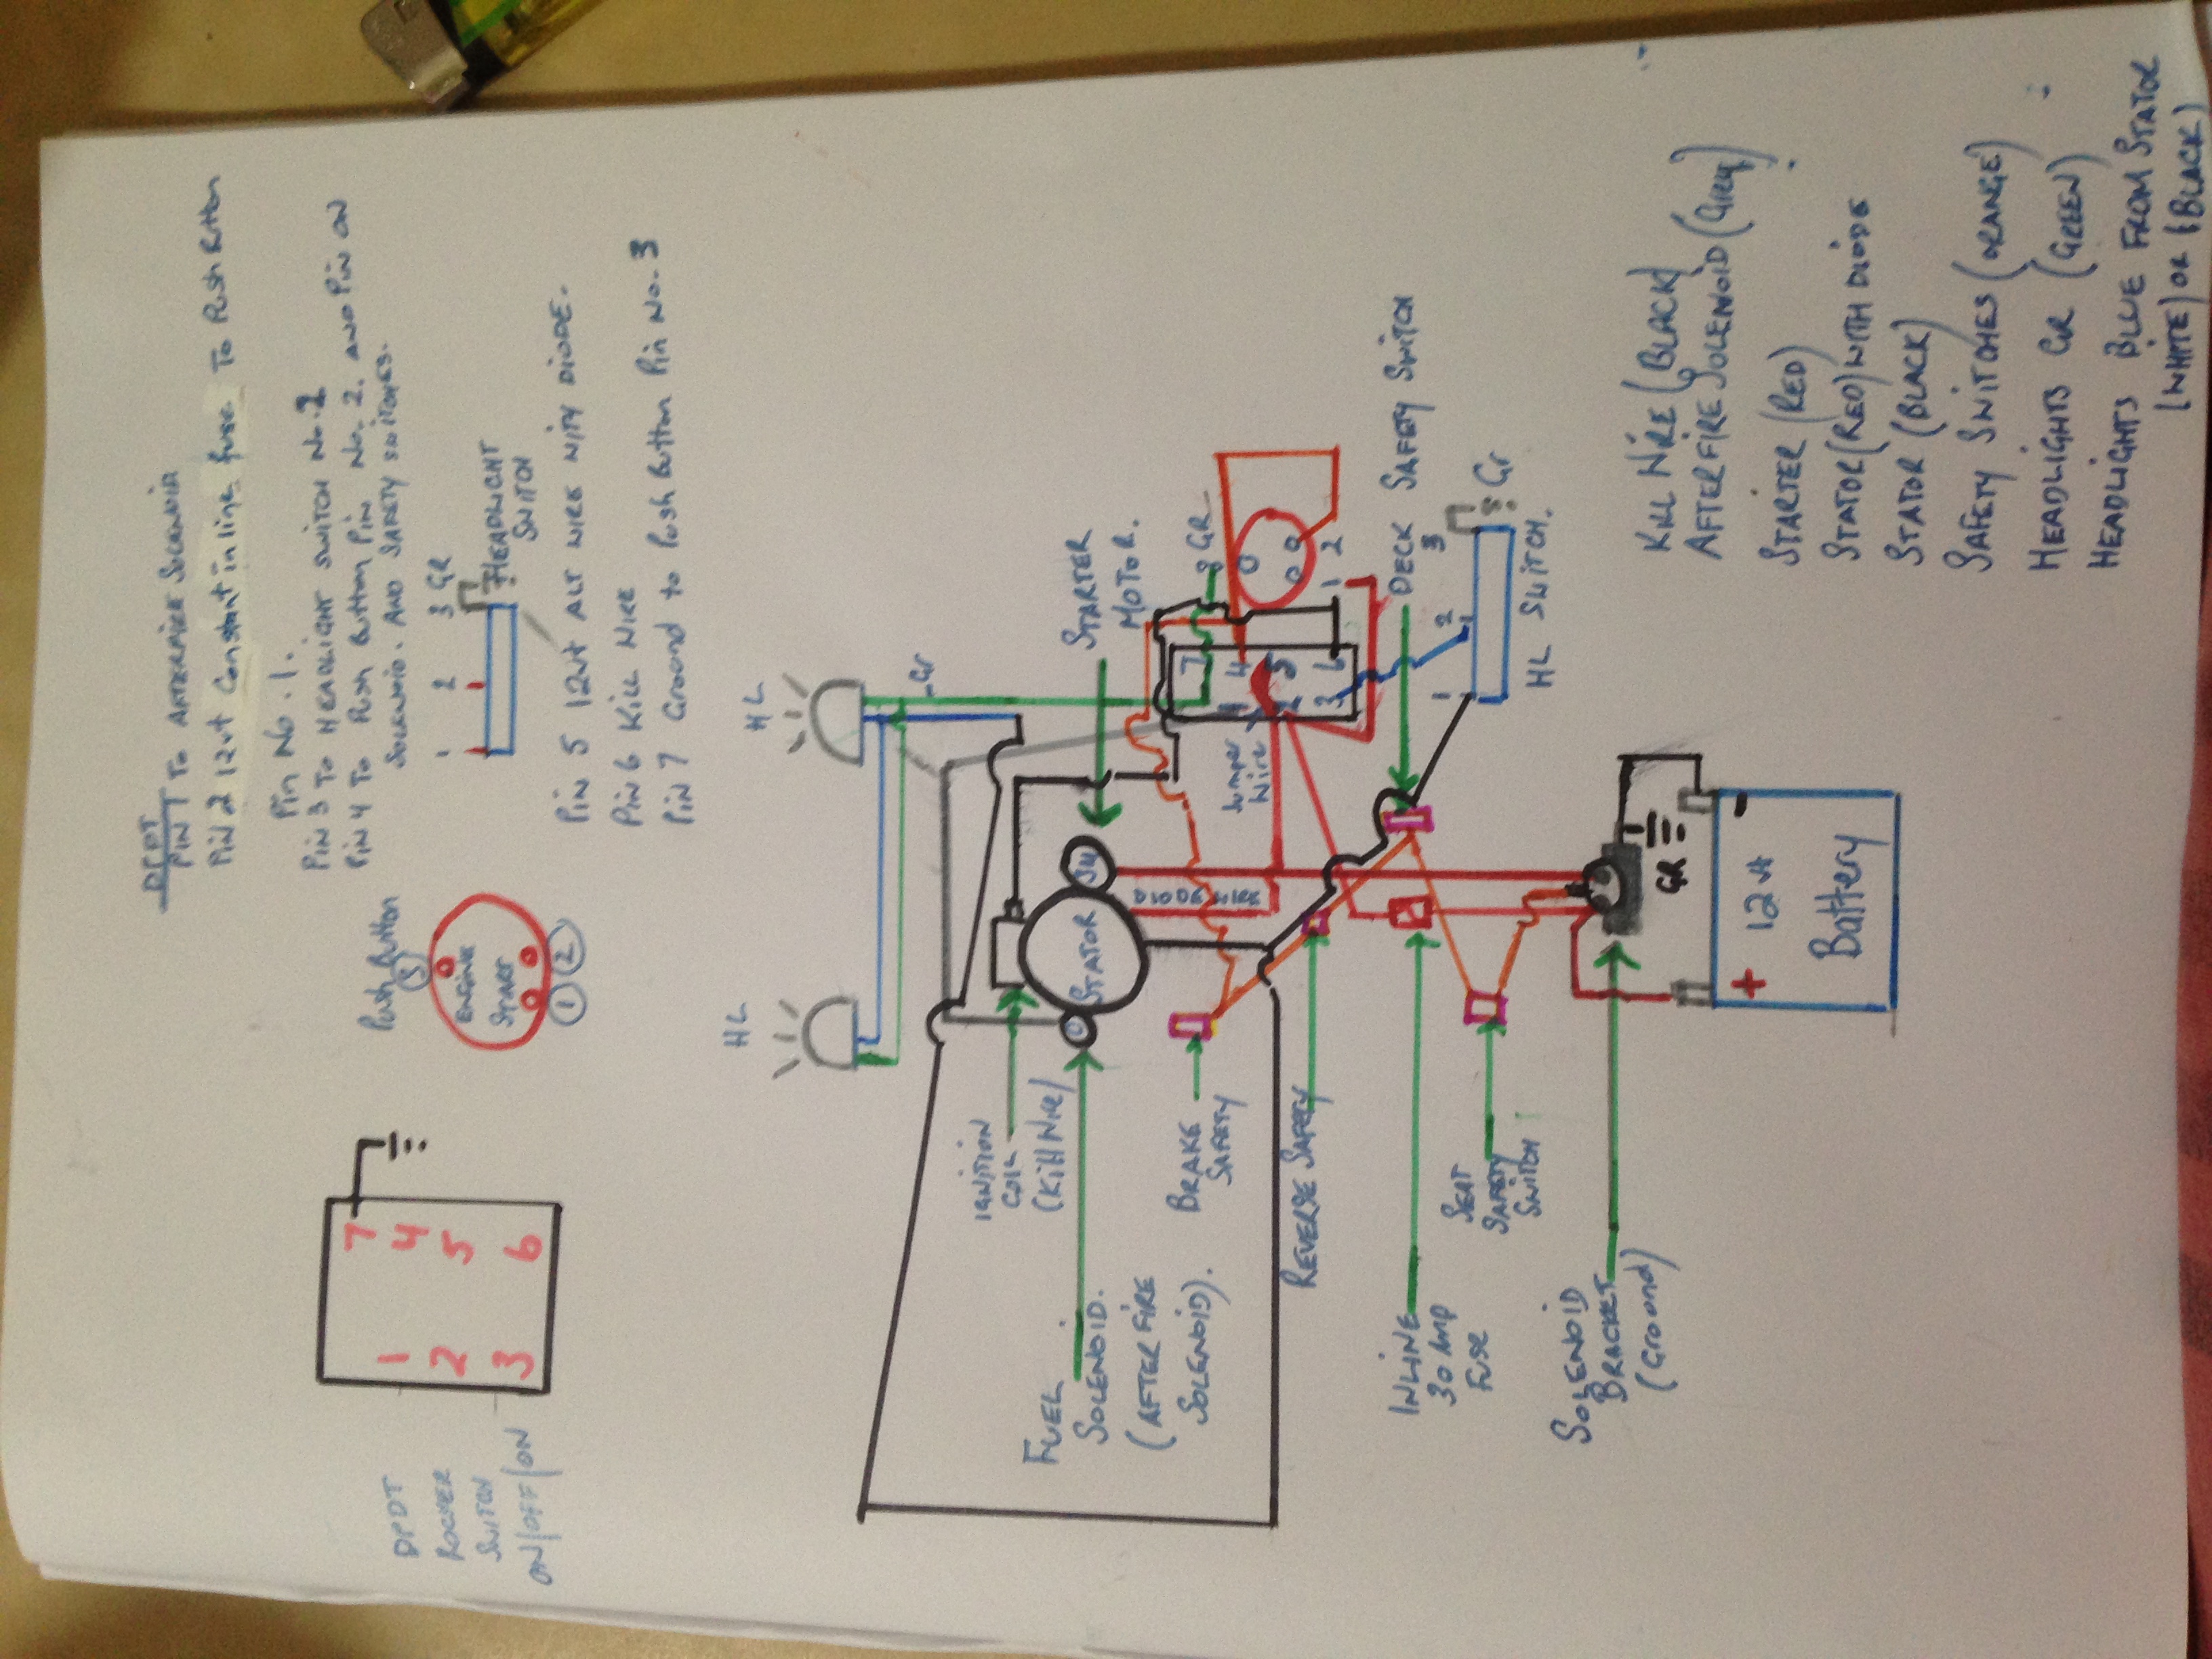 DPDT
PIN 1 To AFTERFIRE SOLENOID
Pin 2 12vt Constant in line fuse To Push Button
Pin No. 1.
Pin 3 To HEADLIGHT SWITCH No. 2
Pin 4 To Push Button Pin No. 2. AND Pin ON
SOLENOID. AND SAFETY SWITCHES.
1 2 3 GR
HEADLIGHT
SWITCH
Pin 5 12vt ALT WIRE WITH DIODE.
Pin 6 Kill WIRE
Pin 7 Ground to Push Button Pin No. 3
Push Button
3
ENGINE
START
1 2
DPDT
ROCKER
SWITCH
ON/OFF/ON
7
1 4
2 5
3 6
HL
HL
Gr
STARTER
MOTOR.
8 GR
7
1 4
2 5
3 6
1 2
Jumper
Wire
DECK SAFETY SWITCH
1 2 3
Gr
HL SWITCH.
IGNITION
COIL
(Kill Wire)
STATOR
SM
DIODE
WIRE
FUEL
SOLENOID.
(AFTER FIRE
SOLENOID).
BRAKE
SAFETY
REVERSE SAFETY
INLINE
30 Amp
FUSE
SEAT
SAFETY
SWITCH
SOLENOID
BRACKET
(Ground)
GR
+ -
12vt
Battery
KILL WIRE (BLACK)
AFTERFIRE SOLENOID (Grey)
STARTER (RED)
STATOR (RED) WITH DIODE
STATOR (BLACK)
SAFETY SWITCHES (ORANGE)
HEADLIGHTS GR (GREEN)
HEADLIGHTS BLUE FROM STATOR
(WHITE) OR (BLACK)